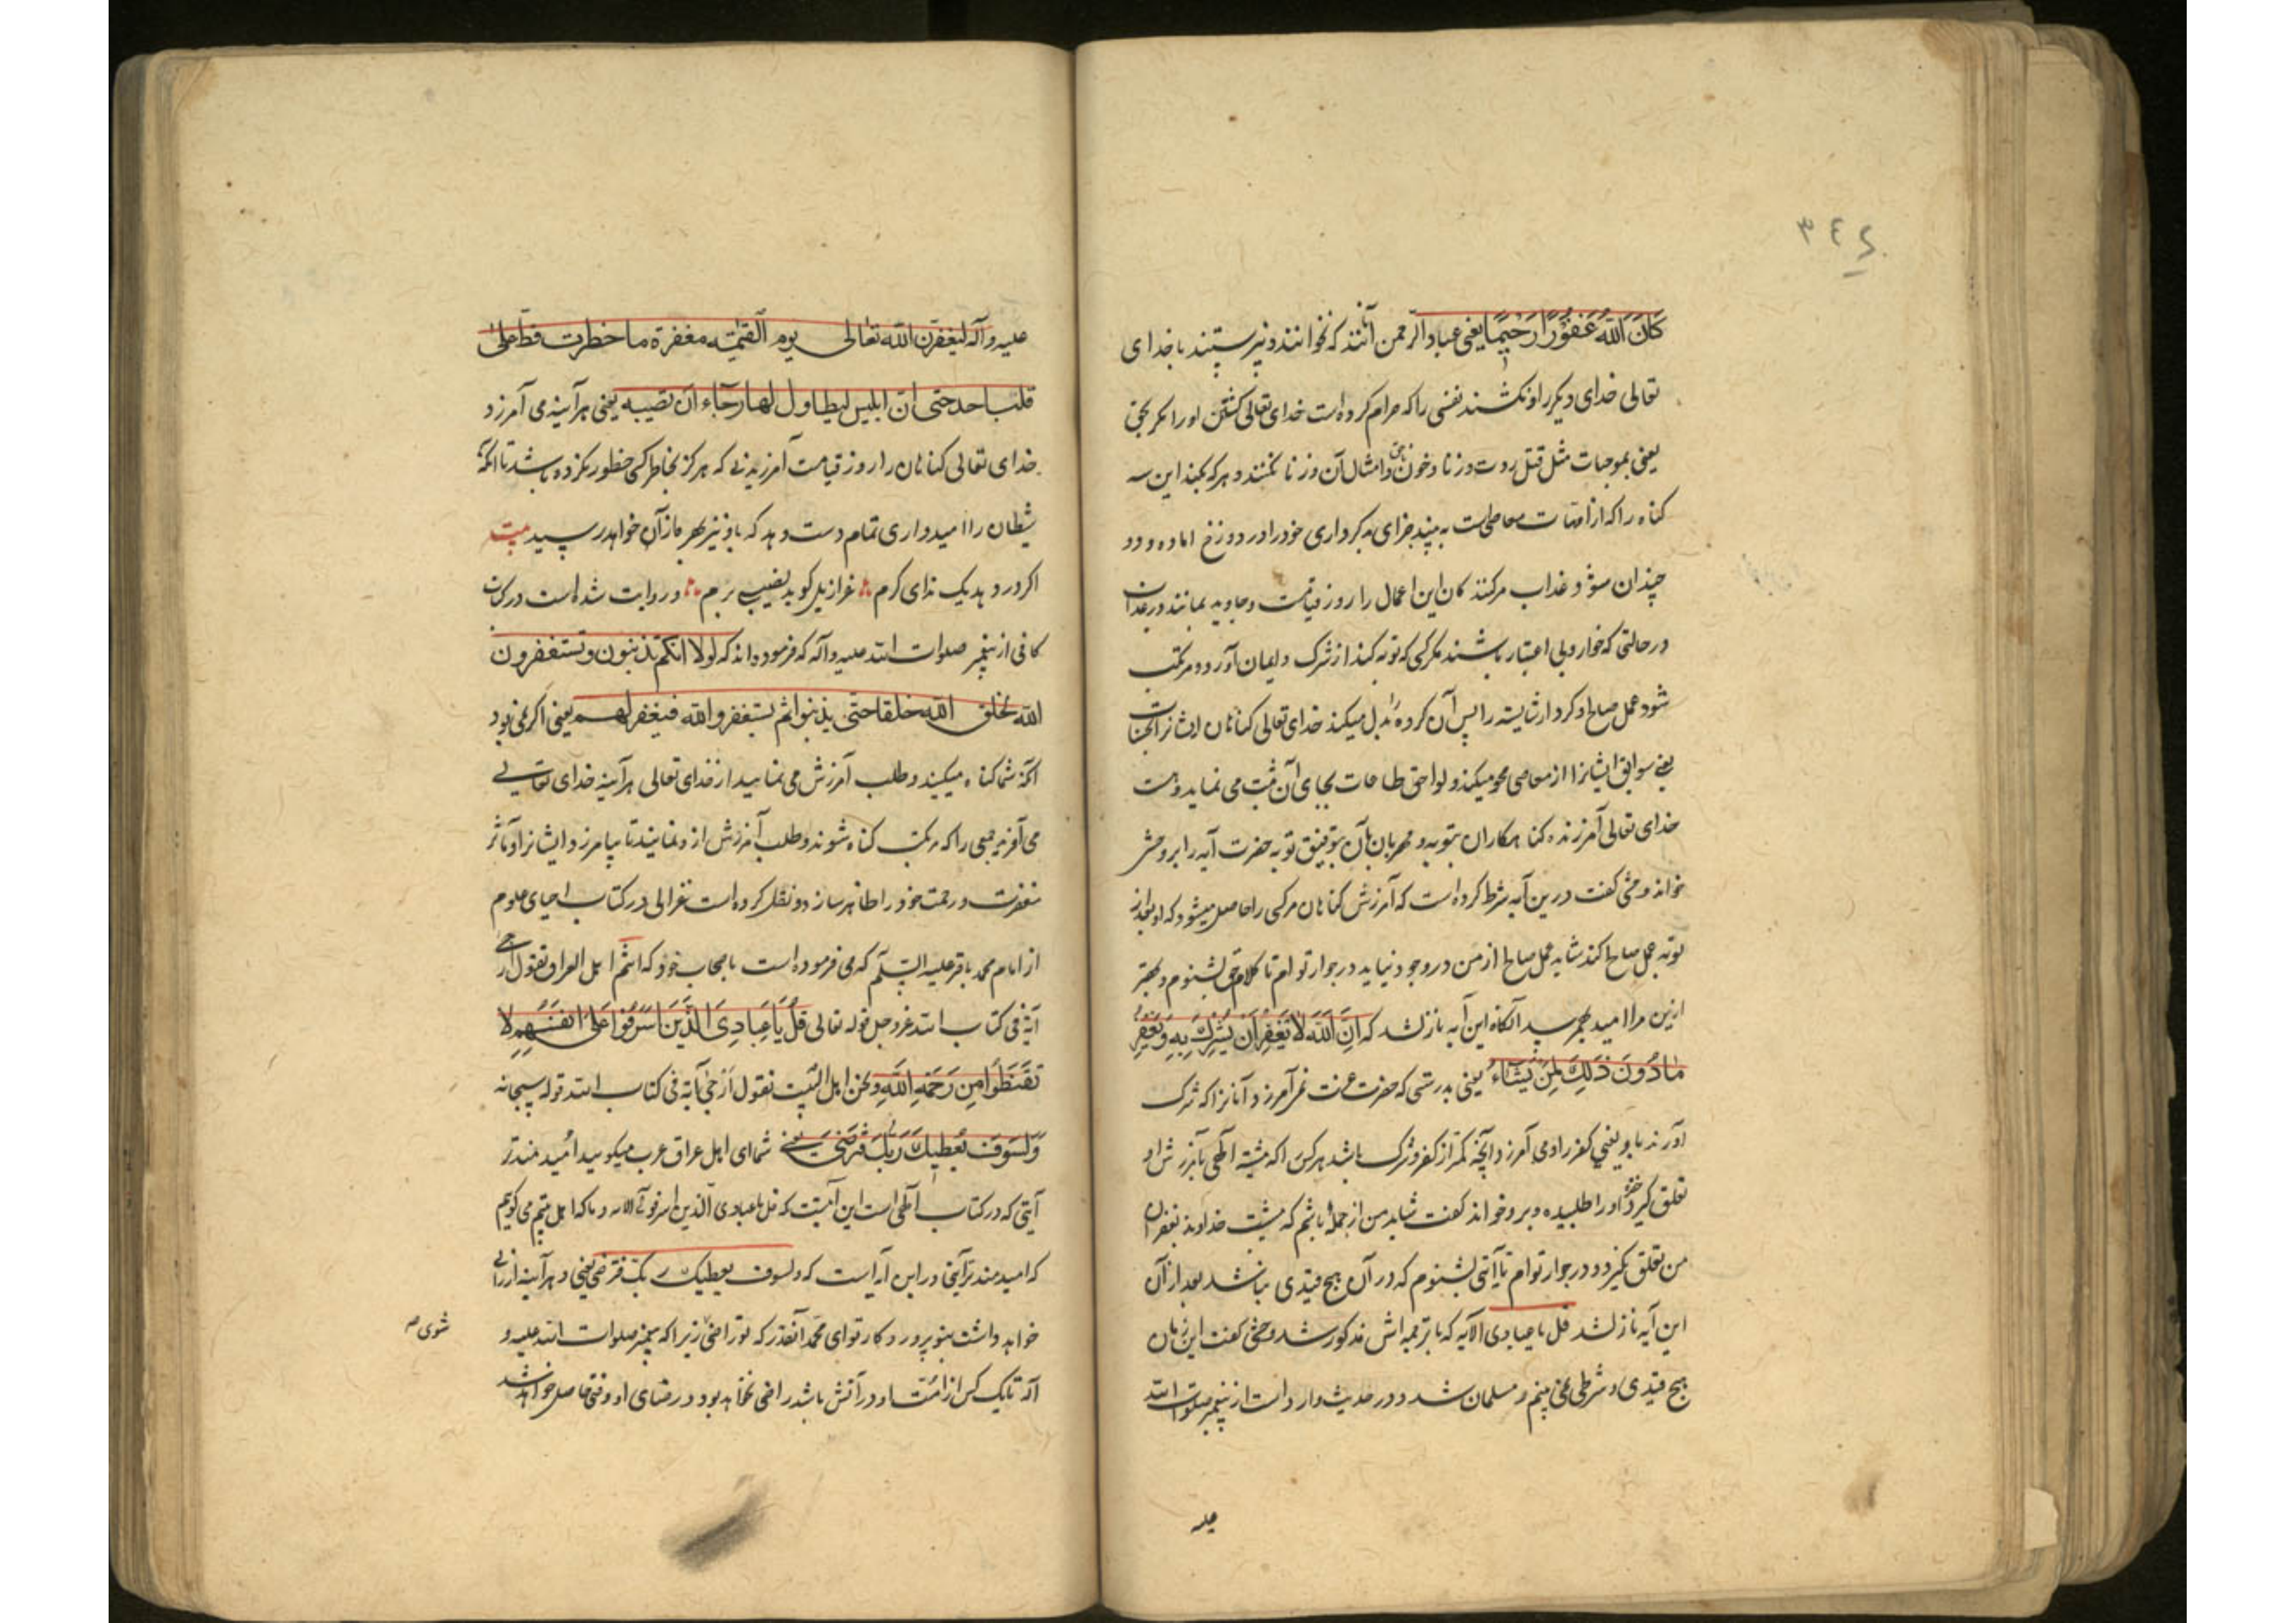 ٣٤٤
كَانَ اللّٰهُ غَفُوْرًا رَحِيْمًا یعنی عباد الرحمن آنانند که نخوانند و نپرستند با خدای
تعالی خدای دیگر را و نکشند نفسی را که حرام کرده است خدای تعالی کشتن او را مگر بحق
یعنی بموجبات مثل قتل ردت و زنا و خون ناحق و امثال آن و زنا نکنند و هر که بکند این سه
کناه را که از امهات معاصی است به بیند جزای بدکرداری خود را در دوزخ اماده و دو
چندان سؤ و عذاب مرکنندکان این اعمال را روز قیامت و جاوید بمانند در عذاب
در حالتی که خوار و بی اعتبار باشند مکر کسی که توبه کند از شرک و ایمان آورد و مرتکب
شود عمل صالح او کردار شایسته را پس آن کرده بدل میکند خدای تعالی کناهان ایشانرا بحسنات
یعنی سوابق ایشانرا از معاصی محو میکند و لواحق طاعات بجای آن ثبت می نماید و هست
خدای تعالی آمرزنده کناهکاران بتوبه و مهربان بآن بتوفیق توبه حضرت آیه را بر وحشی
خواند وحشی کفت درین آیه شرط کرده است که آمرزش کناهان مر کسی را حاصل میشود که او بعد از
توبه عمل صالح کند شاید عمل صالح از من در وجود نیاید در جوار تو ام تا کلام حق بشنوم و بهتر
ازین مرا امید بهم رسد آنکاه این آیه نازل شد که اِنَّ اللّٰهَ لَا يَغْفِرُ اَنْ يُشْرَكَ بِهٖ وَ يَغْفِرُ
مَا دُوْنَ ذٰلِكَ لِمَنْ يَشَاءُ یعنی بدرستی که حضرت عزت نمی آمرزد آنانرا که شرک
آورند باو یعنی کفر را و می آمرزد آنچه کمتر از کفر و شرک باشد هر کس را که مشیت آلهی بآمرزش او
تعلق کیرد حضرت او را طلبیده و برو خواند کفت شاید من از جمله باشم که مشیت خداوند بغفران
من تعلق نگیرد و در جوار تو ام تا آیتی بشنوم که در آن هیچ قیدی نباشد بعد از آن
این آیه نازل شد قل یا عبادی الآیه که با ترجمه اش مذکور شد وحشی کفت این زمان
هیچ قیدی و شرطی نمی بینم و مسلمان شد و در حدیث وارد است از پیغمبر صلوات الله
علیه
علیه و آله لیغفرن الله تعالی یوم القیمة مغفرة ما خطرت قط علی
قلب احد حتی ان ابلیس لیطاول لها رجاء ان تصیبه یعنی هرآینه می آمرزد
خدای تعالی کناهان را روز قیامت آمرزیدنی که هرکز بخاطر کسی خطور نکرده باشد تا آنکه
شیطان را امیدواری تمام دست دهد که باو نیز بهره از آن خواهد رسید بیت
اکر در دهد یک ندای کرم عزازیل کوید نصیبی برم و روایت شده است در کتاب
کافی از پیغمبر صلوات الله علیه و آله که فرموده اند که لولا انکم تذنبون و تستغفرون
الله لخلق الله خلقا حتی یذنبوا ثم یستغفروا الله فیغفر لهم یعنی اکر نمی بود
آنکه شما کناه میکنید و طلب آمرزش می نمایید از خدای تعالی هرآینه خدای تعالی
می آفرید جمعی را که مرتکب کناه شوند و طلب آمرزش ازو نمایند تا بیامرزد ایشانرا و آثار
مغفرت و رحمت خود را ظاهر سازد و نقل کرده است غزالی در کتاب احیای علوم
از امام محمد باقر علیه السلام که می فرموده است باصحاب خود که انتم اهل العراق تقولون ارجی
آیة فی کتاب الله عز و جل قوله تعالی قُلْ يَا عِبَادِىَ الَّذِيْنَ اَسْرَفُوْا عَلٰى اَنْفُسِهِمْ لَا
تَقْنَطُوْا مِنْ رَحْمَةِ اللّٰهِ و نحن اهل البیت نقول ارجی آیة فی کتاب الله قوله سبحانه
وَ لَسَوْفَ يُعْطِيْكَ رَبُّكَ فَتَرْضٰى یعنی شمای اهل عراق عرب میکویید امیدمندتر
آیتی که در کتاب آلهی است این آیتست که قل یا عبادی الذین اسرفوا الآیه و ما که اهل بیتیم می کوییم
که امیدمندتر آیتی در این آیه است که و لسوف یعطیک ربک فترضی یعنی و هرآینه ارزانی
خواهد داشت بتو پروردکار تو ای محمد آنقدر که تو راضی زیرا که پیغمبر صلوات الله علیه و
شوی صه
آله تا یک کس از امت او در آتش باشد راضی نخواهد بود و رضای او وقتی حاصل خواهد شد